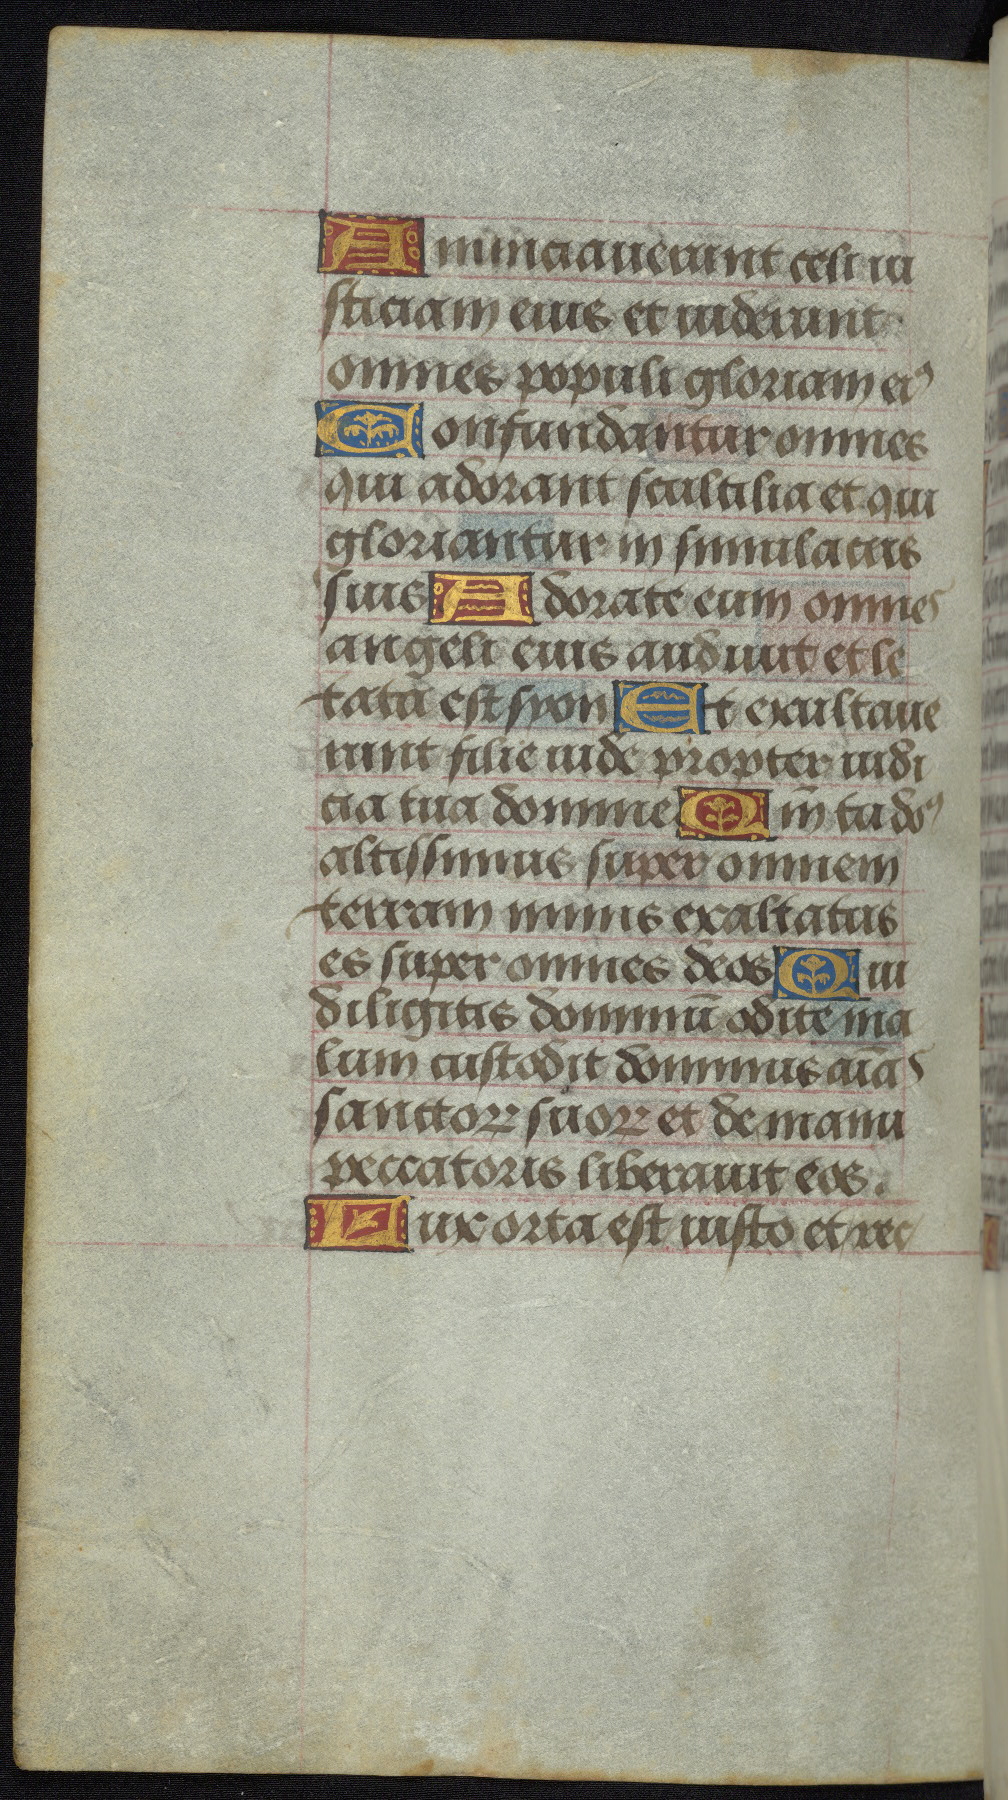 Annunciauerunt celi iu
sticiam eius et uiderunt
omnes populi gloriam eiꝰ
Confundantur omnes
qui adorant scultilia et qui
gloriantur in simulacris
suis Adorate eum omnes
angeli eius audiuit et le
tata est syon Et exultaue
runt filie iude propter iudi
cia tua domine Qm̄ tu doꝰ
altissimus super omnem
terram nimis exaltatus
es super omnes deos Qui
diligitis dominū odite ma
lum custodit dominus aīas
sanctoꝝ suoꝝ et de manu
peccatoris liberauit eos.
Lux orta est iusto et rec